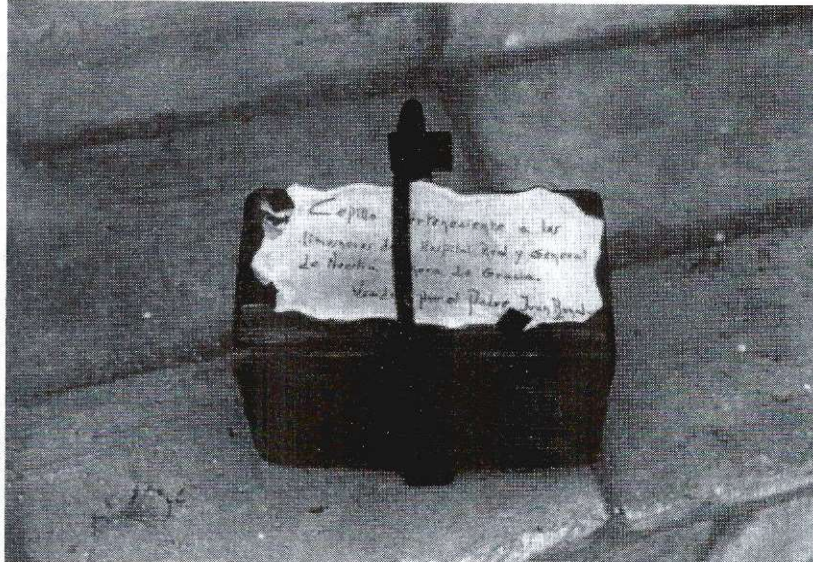 Cepillo perteneciente a los
limosneros del Hospital Real y General
de Nuestra Señora de Gracia.
por el Padre Juan Bonal